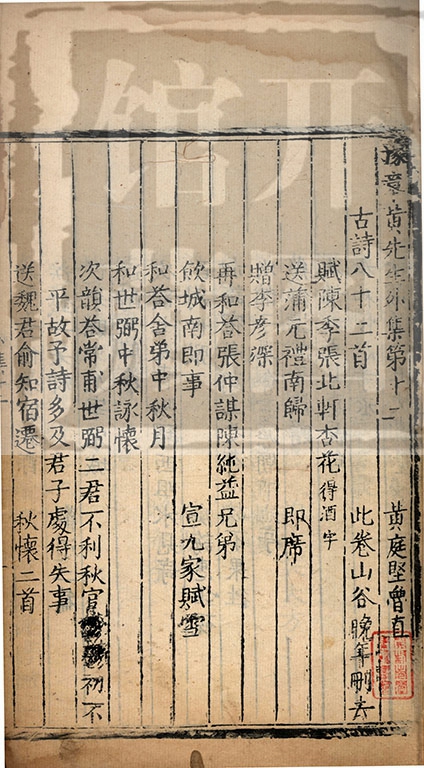 豫章黃先生外集第十二　黃庭堅魯直
古詩八十二首　此卷山谷晚年刪去
賦陳季張北軒杏花得酒字
送蒲元禮南歸　即席
贈李彥深
再和荅張仲謀陳純益兄弟
飲城南即事　宣九家賦雪
和荅舍弟中秋月
和世弼中秋詠懷
次韻荅常甫世弼二君不利秋官　初不
平故予詩多及君子處得失事
送魏君俞知宿遷　秋懷二首